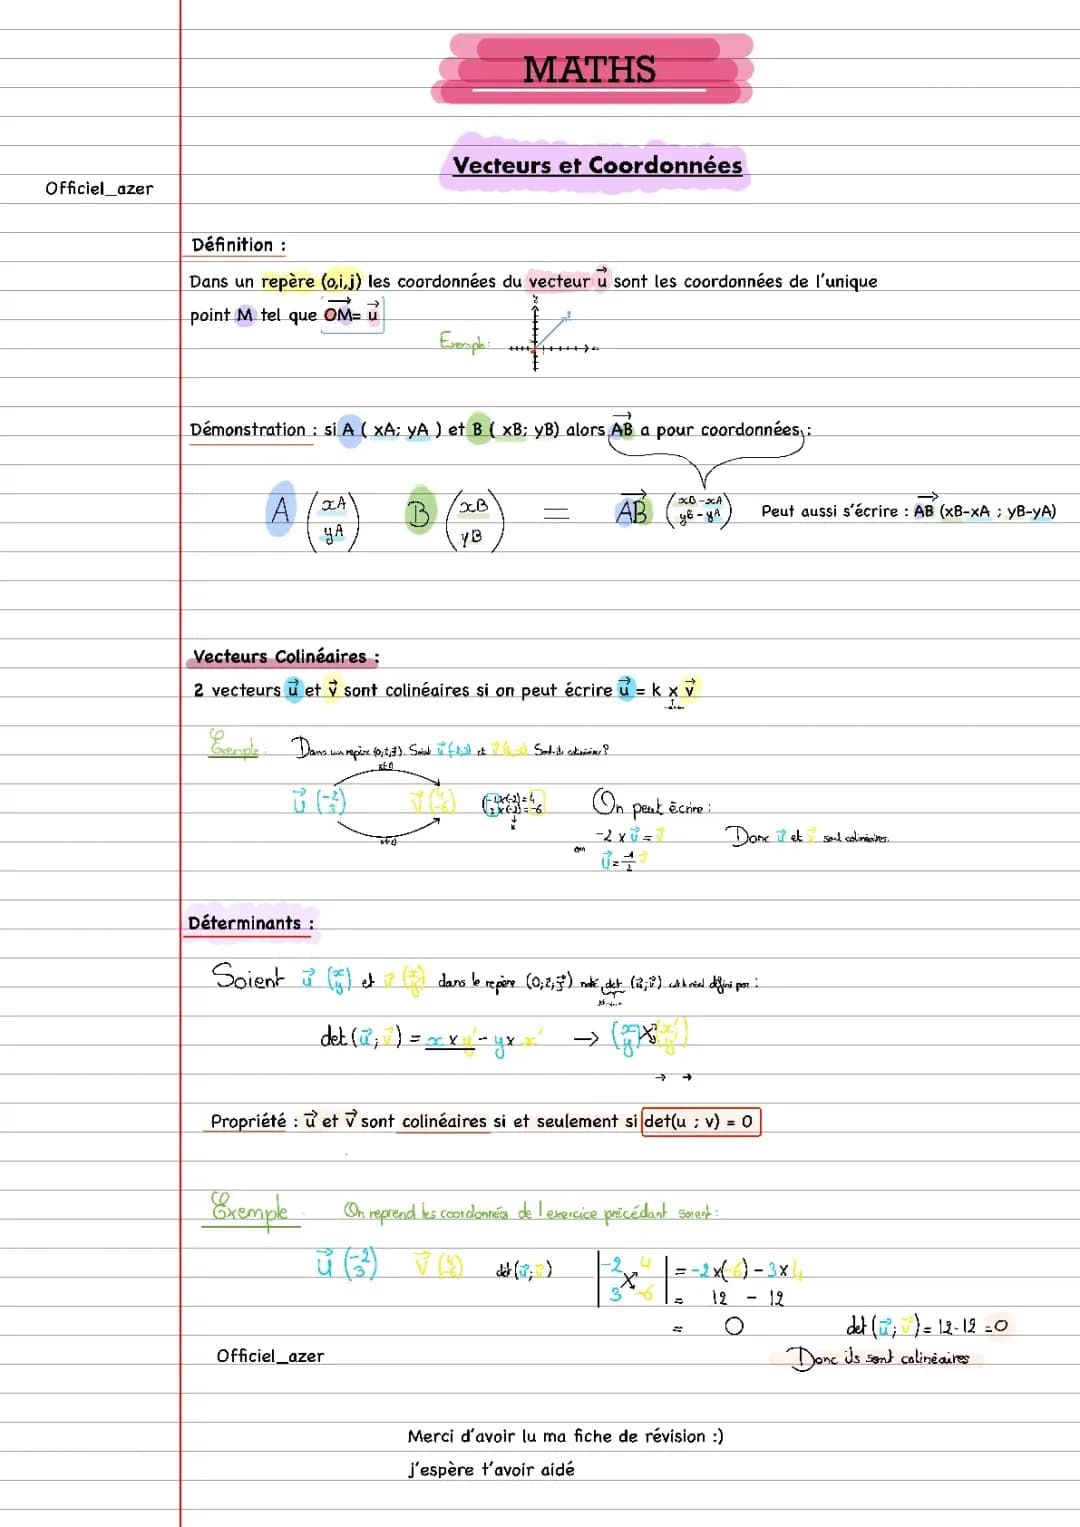 MATHS
Vecteurs et Coordonnées
Officiel_azer
Définition :
Dans un repère (o,i,j) les coordonnées du vecteur u sont les coordonnées de l'unique
point M tel que OM= u
Exemple:
Démonstration : si A ( xA; yA ) et B ( xB; yB) alors AB a pour coordonnées :
A (xA yA) B (xB yB) = AB (xB-xA yB-yA) Peut aussi s'écrire : AB (xB-xA ; yB-yA)
Vecteurs Colinéaires :
2 vecteurs u et v sont colinéaires si on peut écrire u = k x v
Exemple: Dans un repère (o,i,j). Soient u (-2,3) et v (4,-6) Sont-ils colinéaires?
u (-2 3) v (4 -6) On peut écrire :
-2 x u = v Donc u et v sont colinéaires.
ou u = -1/2 v
Déterminants :
Soient u (x y) et v (x' y') dans le repère (O;i;j) det (u;v) défini par :
det (u; v) = x x y' - y x x' → (x y) (x' y')
Propriété : u et v sont colinéaires si et seulement si det(u ; v) = 0
Exemple On reprend les coordonnées de l'exercice précédant soient :
u (-2 3) v (4 -6) det (u; v) |-2 4 3 -6| = -2x(-6) - 3x4
= 12 - 12
= 0 det (u; v) = 12-12 =0
Officiel_azer Donc ils sont colinéaires
Merci d'avoir lu ma fiche de révision :)
j'espère t'avoir aidé